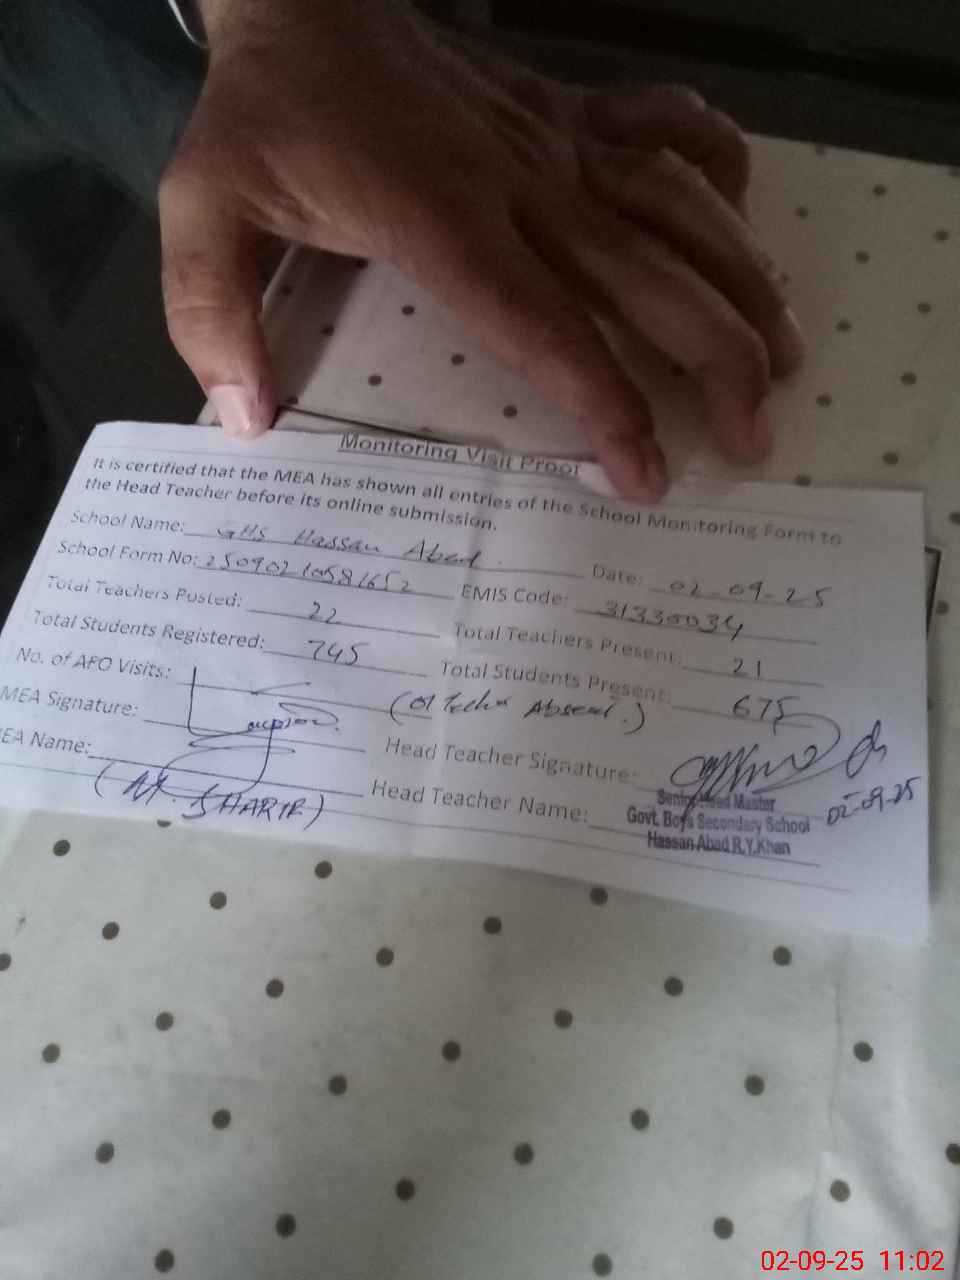 Monitoring Visit Proof
It is certified that the MEA has shown all entries of the School Monitoring Form to
the Head Teacher before its online submission.
School Name: GHS Hassan Abad. Date: 02-09-25
School Form No: 25090210581652 EMIS Code: 31330034
Total Teachers Posted: 22 Total Teachers Present: 21
Total Students Registered: 745 Total Students Present: 675
No. of AEO Visits: (01 Absent.)
MEA Signature: Head Teacher Signature:
02-09-25
MEA Name: (M. SHARIF) Head Teacher Name:
Senior Head Master
Govt. Boys Secondary School
Hassan Abad R.Y.Khan
02-09-25 11:02